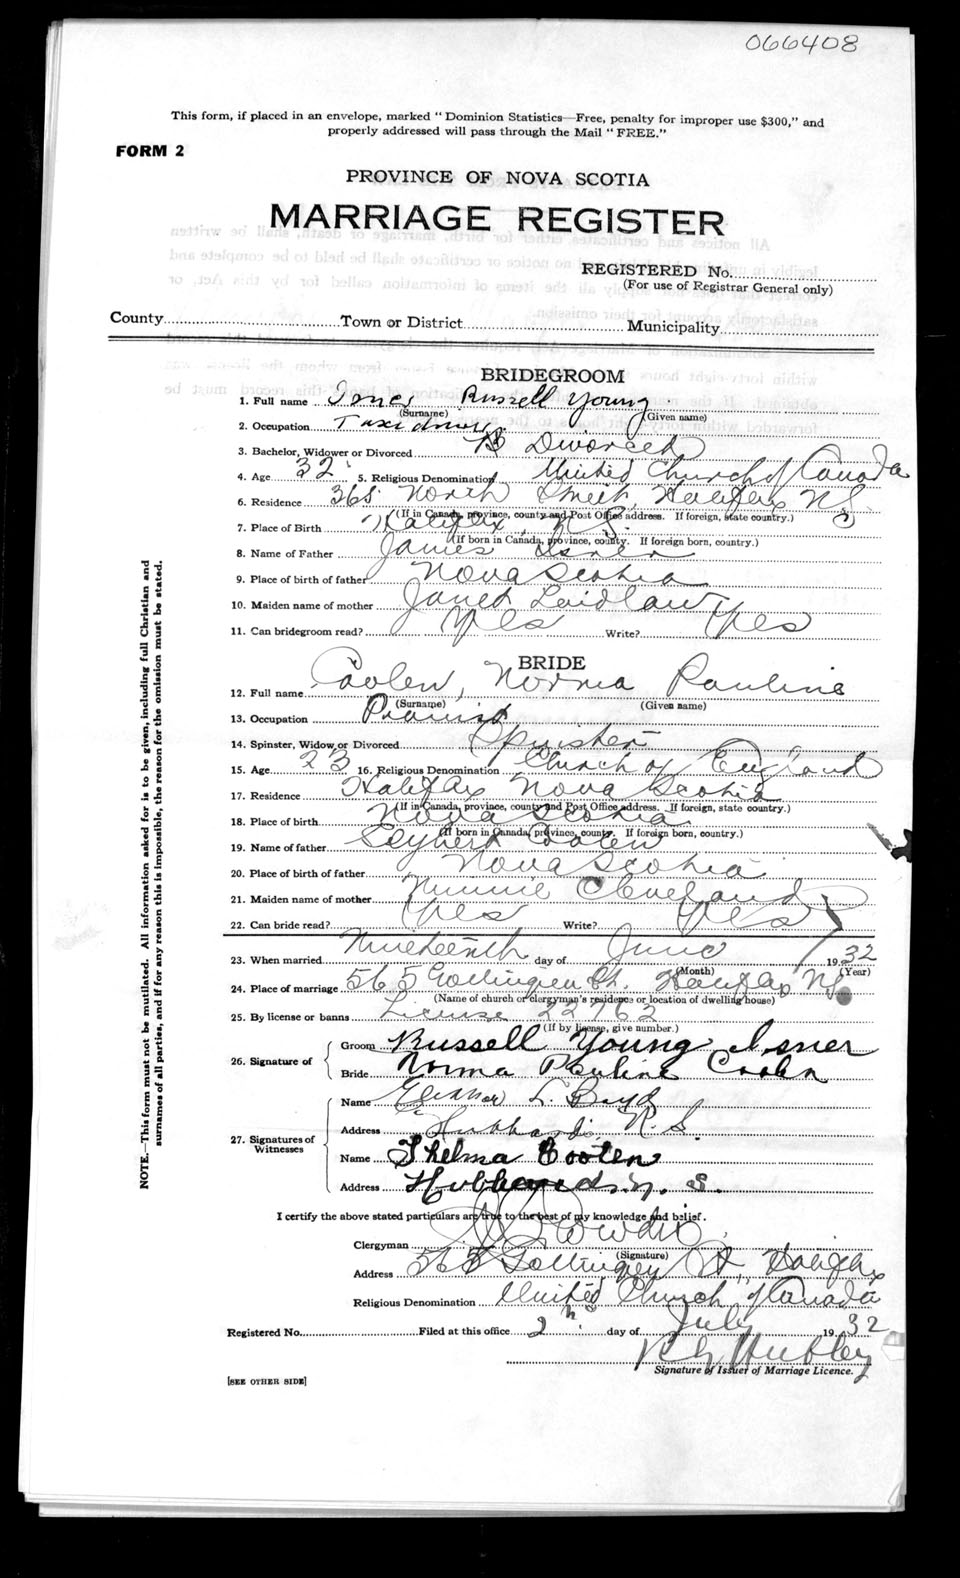 066408
This form, if placed in an envelope, marked "Dominion Statistics—Free, penalty for improper use $300," and
properly addressed will pass through the Mail "FREE."
FORM 2
PROVINCE OF NOVA SCOTIA
MARRIAGE REGISTER
REGISTERED No.
(For use of Registrar General only)
County Town or District Municipality
BRIDEGROOM
1. Full name Isner Russell Young
(Surname) (Given name)
2. Occupation Taxi driver
3. Bachelor, Widower or Divorced Divorced
4. Age 32 5. Religious Denomination United Church of Canada
6. Residence 365 North Street, Halifax NS
(If in Canada, province, county and Post Office address. If foreign, state country.)
7. Place of Birth Halifax N.S.
(If born in Canada, province, county. If foreign born, country.)
8. Name of Father James Isner
9. Place of birth of father Nova Scotia
10. Maiden name of mother Janet Laidlaw
11. Can bridegroom read? Yes Write? Yes
BRIDE
12. Full name Coolen, Norma Pauline
(Surname) (Given name)
13. Occupation Pianist
14. Spinster, Widow or Divorced Spinster
15. Age 23 16. Religious Denomination Church of England
17. Residence Halifax Nova Scotia
(If in Canada, province, county and Post Office address. If foreign, state country.)
18. Place of birth Nova Scotia
(If born in Canada, province, county. If foreign born, country.)
19. Name of father Coolen
20. Place of birth of father Nova Scotia
21. Maiden name of mother Minnie Cleveland
22. Can bride read? Yes Write? Yes
23. When married Nineteenth day of June 1932
(Month) (Year)
24. Place of marriage 565 Gottingen St. Halifax NS
(Name of church or clergyman's residence or location of dwelling house)
25. By license or banns License 22762
(If by license, give number.)
26. Signature of
Groom Russell Young Isner
Bride Norma Pauline Coolen
27. Signatures of Witnesses
Name Eleanor L. Boyd
Address Hubbards, N.S.
Name Thelma Coolen
Address Hubbards. N. S.
I certify the above stated particulars are true to the best of my knowledge and belief.
Clergyman
(Signature)
Address 565 Gottingen St., Halifax
Religious Denomination United Church of Canada
Registered No. Filed at this office 2nd day of July 1932
Hubley
Signature of Issuer of Marriage Licence.
[SEE OTHER SIDE]
NOTE.—This form must not be mutilated. All information asked for is to be given, including full Christian and
surnames of all parties, and if for any reason this is impossible, the reason for the omission must be stated.